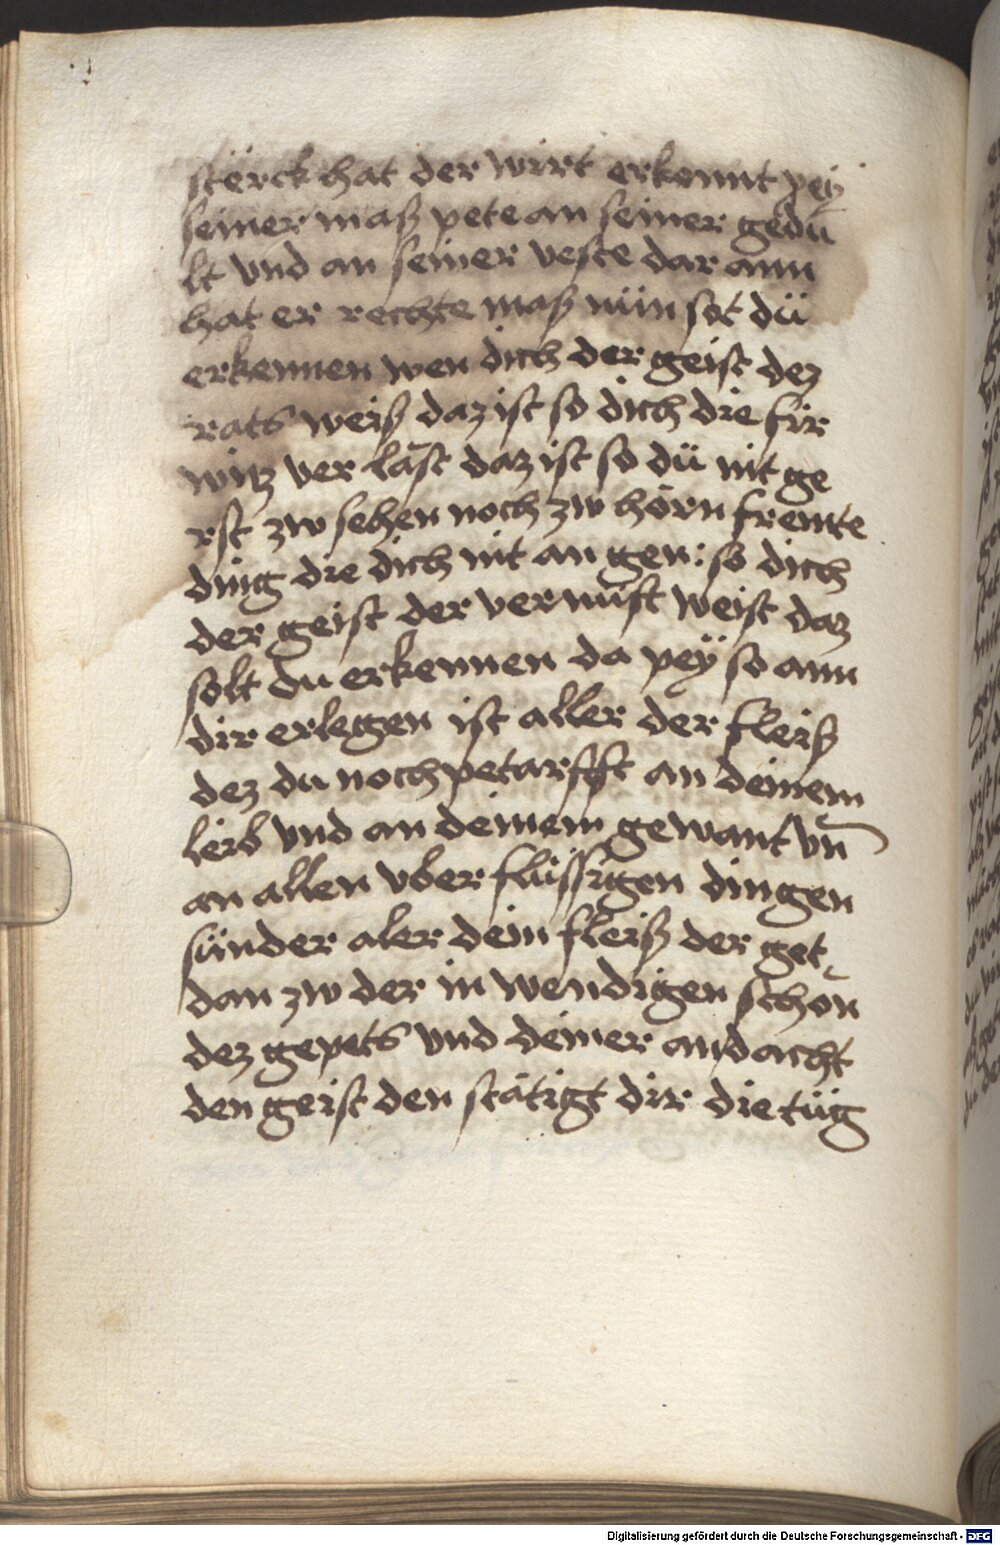 stërck hat der wirt erkennt peÿ
seiner masz pete an seiner gedu̅
lt vnd an seiner veste dar ann
hat er rechte masz nün sot dü
erkennen wen dich der geist dez
rats weisz daz ist so dich die fir
witz ver läst daz ist so dü nit ge
rst zw sehen noch zw hörn fremte
ding die dich nit an gen : so dich
der geist der vernu̅ft weist daz
solt du erkennen da peÿ so ann
dir erlegen ist aller der fleisz
dez du noch petarfft an deinem
leib vnd an deinem gewant vn̅
an allen vber flüssigen dingen
sünder aler dein fleisz der get
dan zw der in wendigen schön
dez gepets vnd deiner andacht
den geist den stätigt dir die tüg
Digitalisierung gefördert durch die Deutsche Forschungsgemeinschaft - DFG